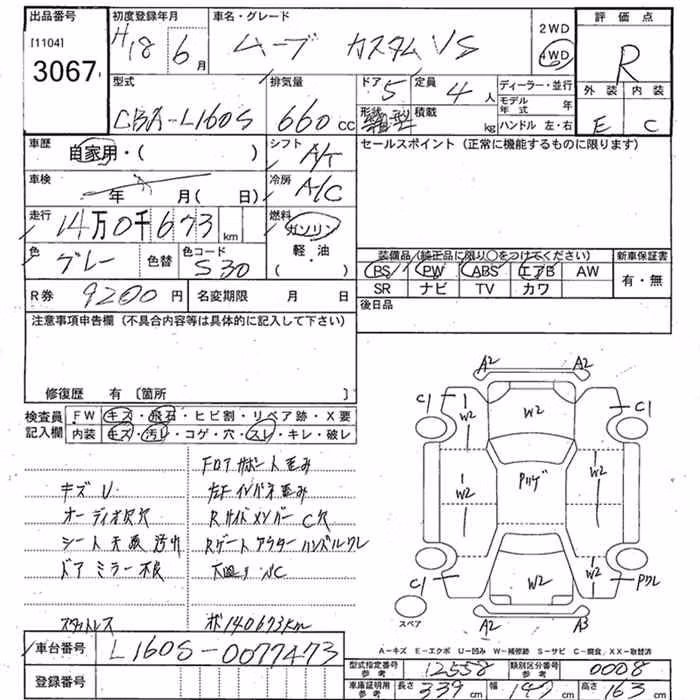 出品番号
[1104]
3067
初度登録年月
H18 6月
車名・グレード
ムーブ カスタム VS
2WD
4WD
評価点
R
外装 内装
E C
型式
CBA-L160S
排気量
660cc
ドア 定員
5 4人
形状 積載
箱型 kg
ディーラー・並行
モデル年式 年
ハンドル 左・右
車歴
自家用・( )
シフト
A/T
セールスポイント (正常に機能するものに限ります)
車検
年 月(日)
冷房
A/C
走行
14万0千673km
燃料
ガソリン
軽・油
( )
色
グレー
色替
色コード
S30
装備品 (純正品に限り○をつけてください)
新車保証書
PS PW ABS エアB AW
SR ナビ TV カワ
有・無
R券 9200円
名変期限 月 日
後日品
注意事項申告欄 (不具合内容等は具体的に記入して下さい)
修復歴 有 〔箇所 〕
検査員記入欄
FW キズ・飛石・ヒビ割・リペア跡・X要
内装 キズ・汚レ・コゲ・穴・スレ・キレ・破レ
Fロアサポート歪み
キズU
左Fインパネ歪み
オーディオ欠穴
RサイドメンバーC穴
シート天張汚れ
Rゲートアウターハンドルワレ
ドアミラー不良
下回り、SC
スタットレス
ポ140673km
A2 A2
C1 C1
W2 W2 W2
Pハゲ
W2 W2
W2 W2
C1 Pワレ
A2 A3
スペア
A-キズ E-エクボ U-凹み W-補修跡 S-サビ C-腐食 XX-取替済
車台番号 L160S-0077473
登録番号
型式指定番号参考 12558
類別区分番号参考 0008
車庫証明用参考 長さ 339cm 幅 147cm 高さ 163cm